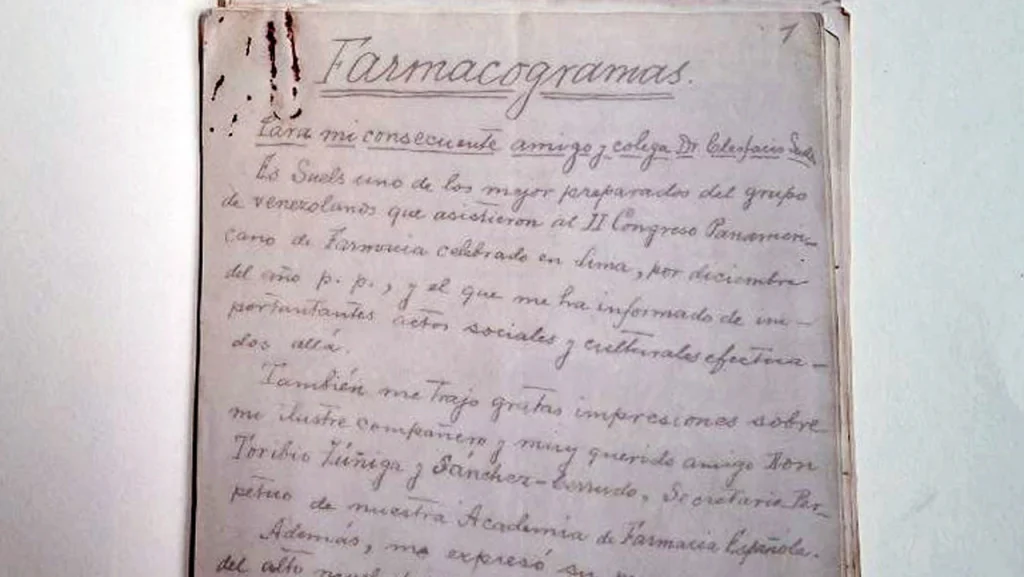 1
Farmacogramas.
Para mi consecuente amigo y colega Dr
Es Suels uno de los mejor preparados del grupo
de venezolanos que asistieron al II Congreso Panameri-
cano de Farmacia celebrado en Lima, por diciembre
del año p. p., y el que me ha informado de im-
portantantes actos sociales y culturales efectua-
dos allá.
También me trajo gratas impresiones sobre
mi ilustre compañero y muy querido amigo Don
Toribio Zúñiga y Sánchez-Cerrudo, Secretario Per-
petuo de nuestra Academia de Farmacia Española.
Además, me expresó su
del alto